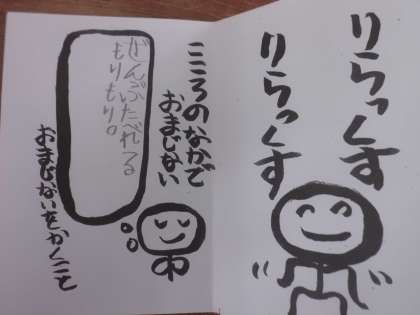 りらっくす
りらっくす
こころのなかで
おまじない
ぜんぶたべれる
もりもり。
おまじないをかくこと